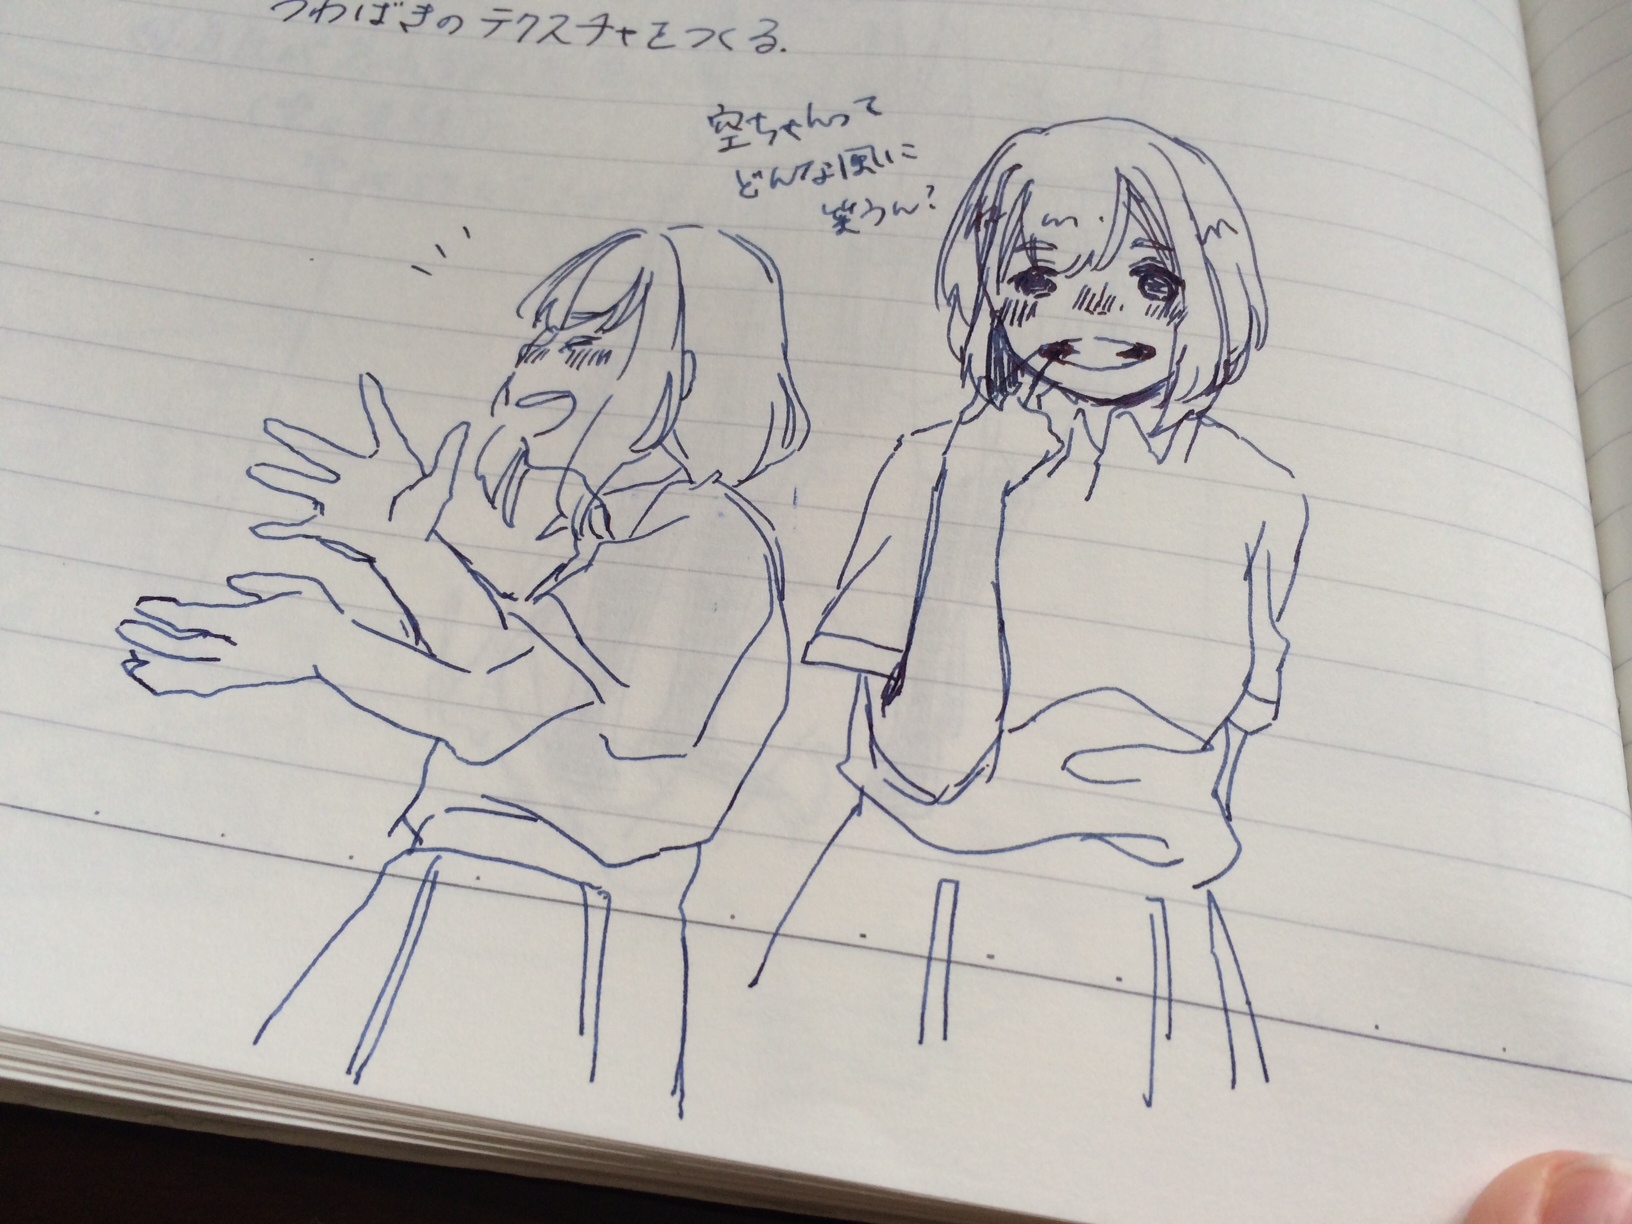 うわばきのテクスチャをつくる.
空ちゃんって
どんな風に
笑うん?